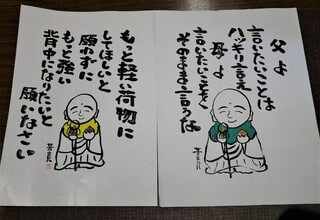 父よ
言いたいことは
ハッキリ言え
母よ
言いたいことを
そのまま言うな
もっと軽い荷物に
してほしいと
願わずに
もっと強い
背中になりたいと
願いなさい